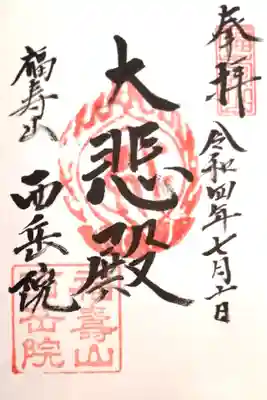 奉拝
令和四年七月十日
大悲殿
福寿山
西岳院
福壽山
西岳院